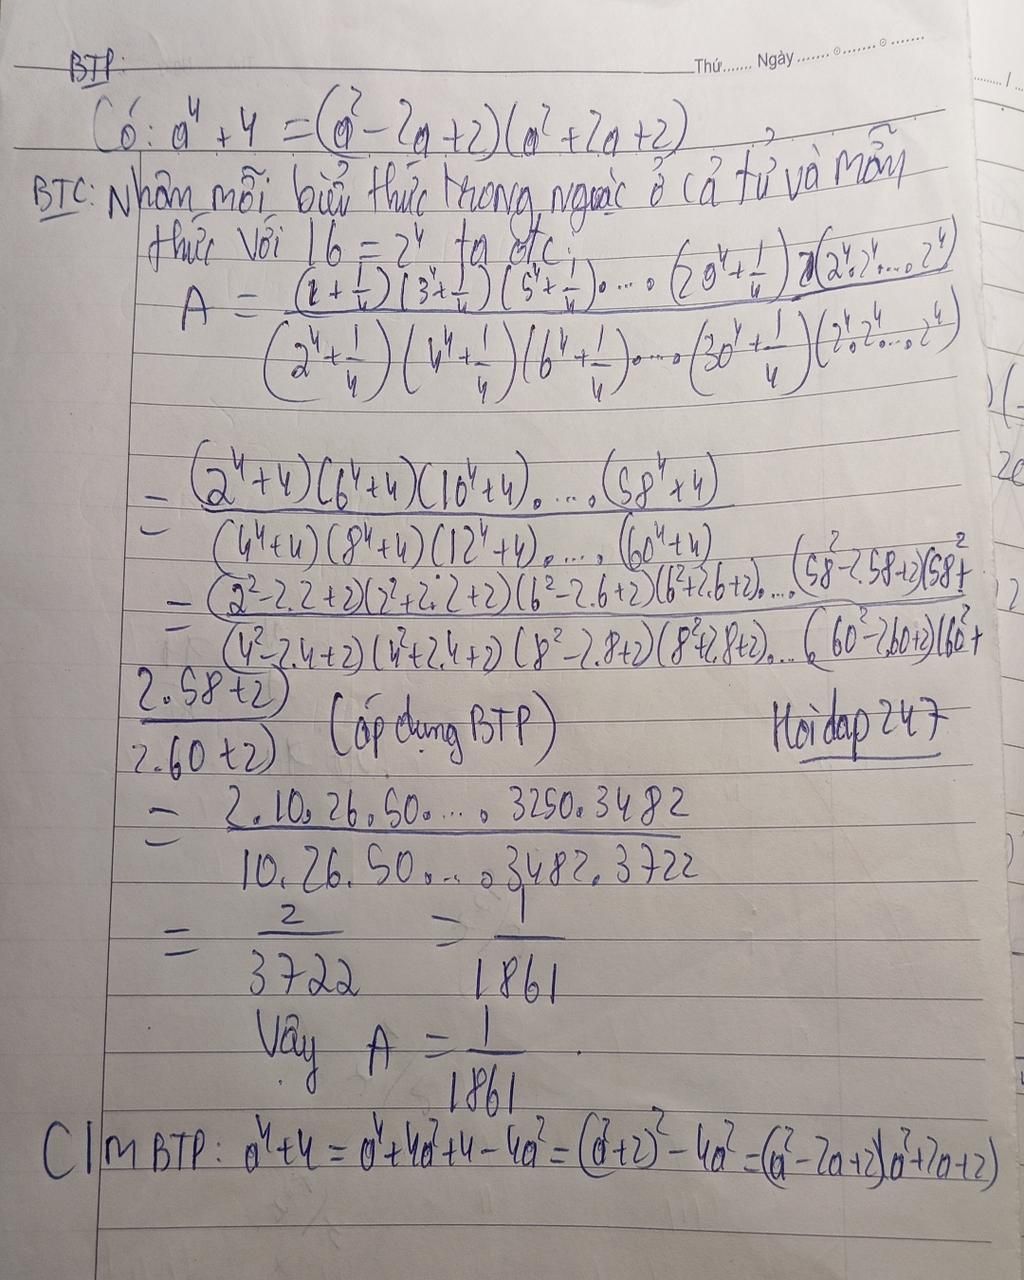 BTP:
Thứ....... Ngày
Có: a⁴ + 4 = (a² - 2a + 2)(a² + 2a + 2)
BTC: Nhân mỗi biểu thức trong ngoặc ở cả tử và mẫu
thức với 16 = 2⁴ ta đc:
A = (1 + 1/4)(3⁴ + 1/4)(5⁴ + 1/4). ... . (29⁴ + 1/4)(2⁴. 2⁴. ... . 2⁴) / (2⁴ + 1/4)(4⁴ + 1/4)(6⁴ + 1/4). ... . (30⁴ + 1/4)(2⁴. 2⁴. ... . 2⁴)
= (2⁴ + 4)(6⁴ + 4)(10⁴ + 4). ... . (58⁴ + 4) / (4⁴ + 4)(8⁴ + 4)(12⁴ + 4). ... . (60⁴ + 4)
= (2² - 2.2 + 2)(2² + 2.2 + 2)(6² - 2.6 + 2)(6² + 2.6 + 2). ... . (58² - 2.58 + 2)(58² + / (4² - 2.4 + 2)(4² + 2.4 + 2)(8² - 2.8 + 2)(8² + 2.8 + 2). ... . (60² - 2.60 + 2)(60² +
2.58 + 2) / 2.60 + 2) (áp dụng BTP) Hoidap 247
= 2. 10. 26. 50. ... . 3250. 3482 / 10. 26. 50. ... . 3482. 3722
= 2 / 3722 = 1 / 1861
Vậy A = 1 / 1861 .
C/m BTP: a⁴ + 4 = a⁴ + 4a² + 4 - 4a² = (a² + 2)² - 4a² = (a² - 2a + 2)(a² + 2a + 2)